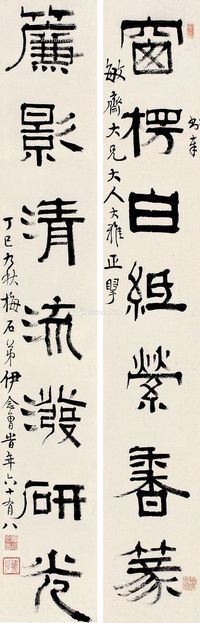 書奉
窗楞白紙縈香篆
敏齋大兄大人大雅正擘
簾影清流潑研光
丁巳九秋梅石弟伊念曾昔年六十有八